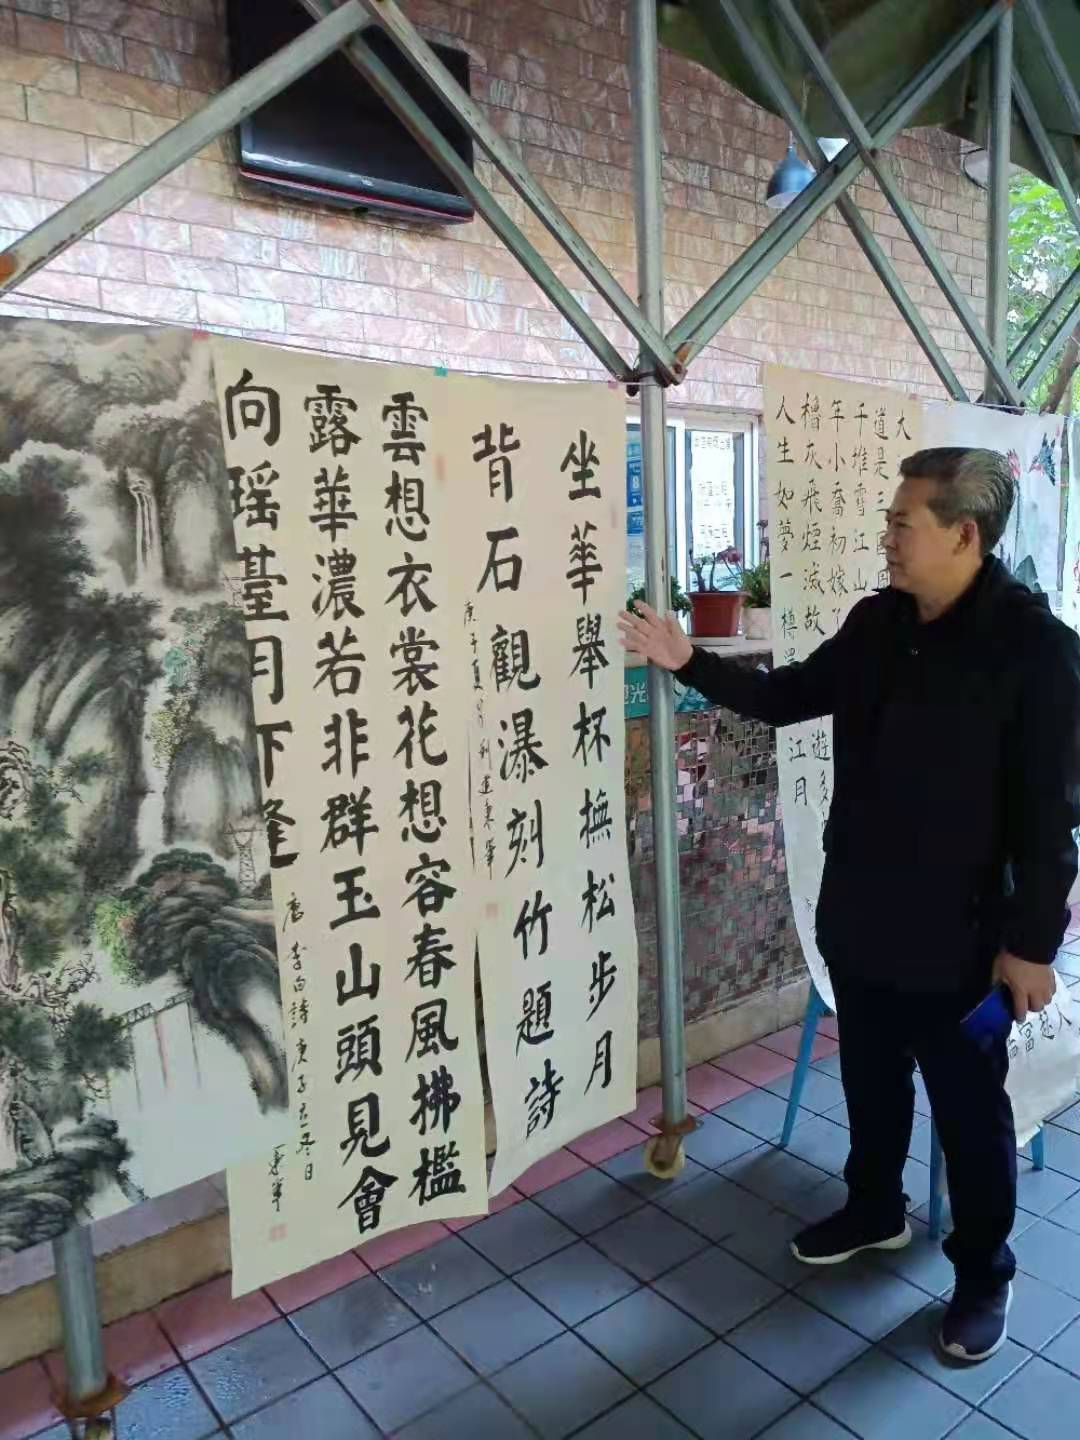 大
道是三國周
千堆雪江山
年小喬初嫁了
櫓灰飛煙滅故 遊多
人生如夢一樽還 江月
坐華舉杯撫松步月
背石觀瀑刻竹題詩
庚子夏月
雲想衣裳花想容春風拂檻
露華濃若非群玉山頭見會
向瑶臺月下逢
唐李白詩庚子立冬日